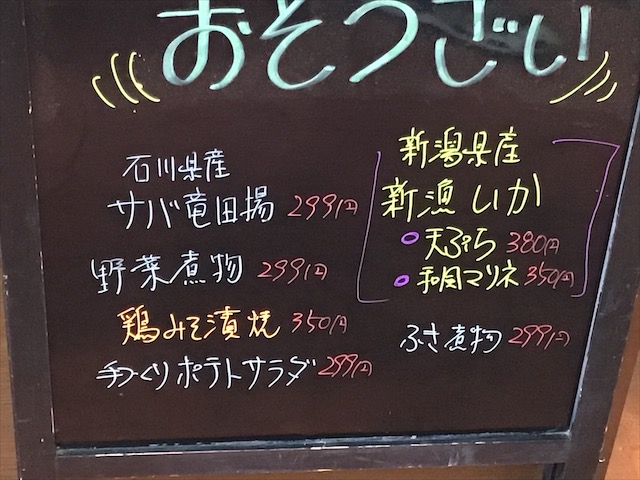 おそうざい
石川県産
サバ竜田揚 299円
野菜煮物 299円
鶏みそ漬焼 350円
手づくりポテトサラダ 299円
新潟県産
新漁いか
天ぷら 380円
和風マリネ 350円
ふき煮物 299円